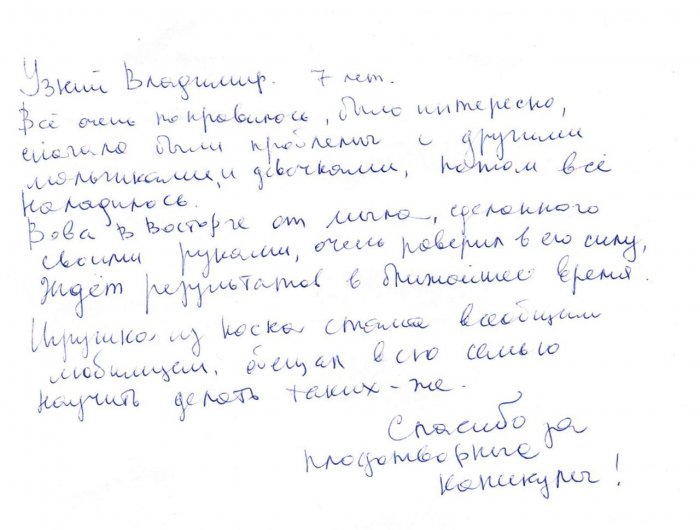 Узкий Владимир. 7 лет.
Всё очень понравилось, было интересно,
сначала были проблемы с другими
мальчиками и девочками, потом всё
наладилось.
Вова в восторге от мыла, сделанного
своими руками, очень поверил в его силу,
ждёт результатов в ближайшее время.
Игрушка из носка стала всеобщим
любимцем, обещал всю семью
научить делать таких-же.
Спасибо за
плодотворные
каникулы!